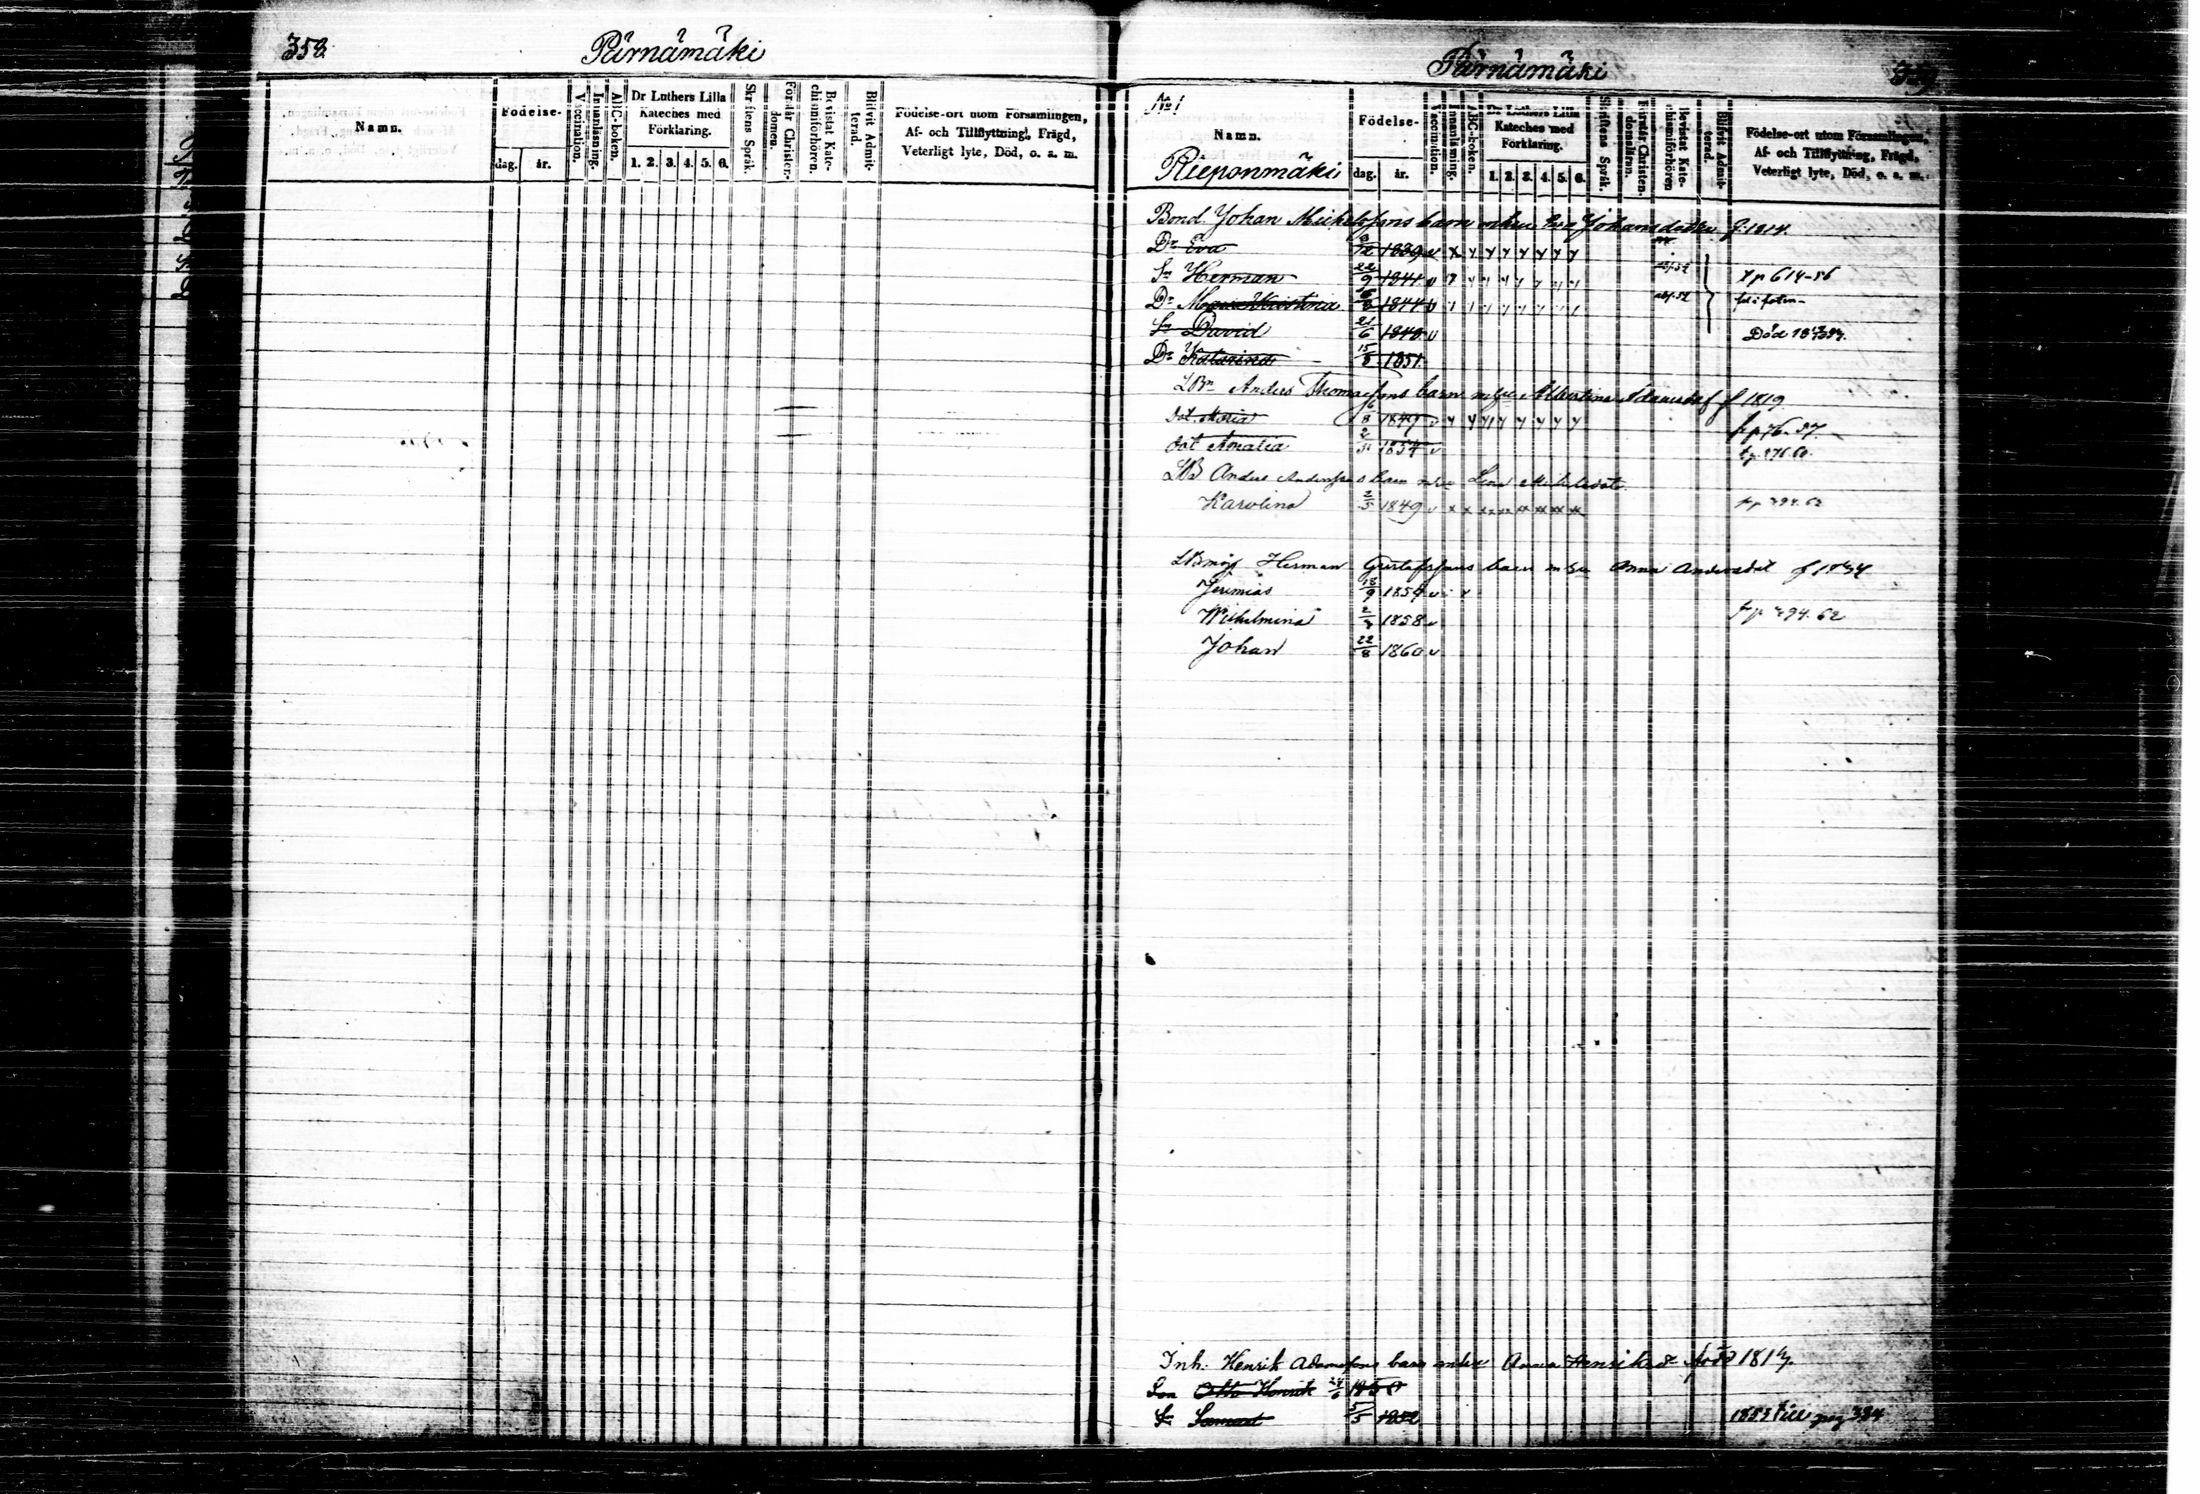 358.
Pärnämäki
Namn.
Födelse-
dag. år.
Vaccination.
Innanläsning.
ABC-boken.
Dr Luthers Lilla
Kateches med
Förklaring.
1. 2. 3. 4. 5. 6.
Skriftens Språk.
Förstår Christen-
domen.
Bevistat Kate-
chismiförhören.
Blifvit Admit-
terad.
Födelse-ort utom Församlingen,
Af- och Tillflyttning, Frägd,
Veterligt lyte, Död, o. a. m.
Pärnämäki
359
No 1
Namn.
Rieponmäki
Födelse-
dag. år.
Vaccination.
Innanläsning.
ABC-boken.
Dr Luthers Lilla
Kateches med
Förklaring.
1. 2. 3. 4. 5. 6.
Skriftens Språk.
Förstår Christen-
domsläran.
Bevistat Kate-
chismiförhören
Blifvit Admit-
terad.
Födelse-ort utom Församlingen,
Af- och Tillflyttning, Frägd,
Veterligt lyte, Död, o. a. m.
Bond. Johan Michelssons barn m hu Eva Johansdotter f. 1814.
Dr Eva 1839 v x y y y y y y y
Sn Herman 22/9 1841 v y y y y y y y 614-56
Dr Maria Kristina 1844 v
Sn David 21/6 1848 v Död
Dr Katarina 15/8 1851.
LBn Anders Thomassons barn m hu Albertina Adamsd f 1819
Dot. Maria 6/8 1847 v y y y y y y y y 76-57.
Dot Amalia 1854 v
LB Anders Anderssons barn m hu Lena Michelsdotr
Karolina 2/5 1849 v x x x x x x x x 394. 62
LBmåg Herman Gustafssons barn m hu Anna Andersdot f 1834
Jeremias 18/9 1854 v
Wilhelmina 1858 v 394. 62
Johan 22/8 1860 v
Inh. Henrik Adamssons barn m hu Anna Henriksdr född 1817.
Son Otto Henrik 24/6 1850
Sn 5/5 1852 1853 till pag 384